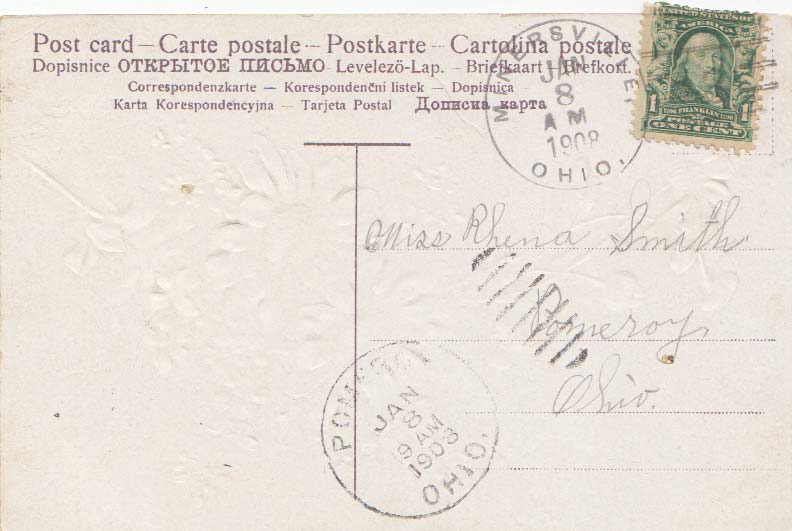 Post card – Carte postale – Postkarte – Cartolina postale
Dopisnice ОТКРЫТОЕ ПИСЬМО – Levelező-Lap. – Briefkaart – Brefkort.
Correspondenzkarte – Korespondenční listek – Dopisnica
Karta Korespondencyjna – Tarjeta Postal – Дописна карта
MINERSVILLE,
JAN
8
AM
1908
OHIO.
UNITED STATES OF
AMERICA
1 FRANKLIN 1
POSTAGE
ONE CENT
Miss Rhena Smith
Pomeroy,
Ohio.
POMEROY
JAN
8
9 AM
1908
OHIO.